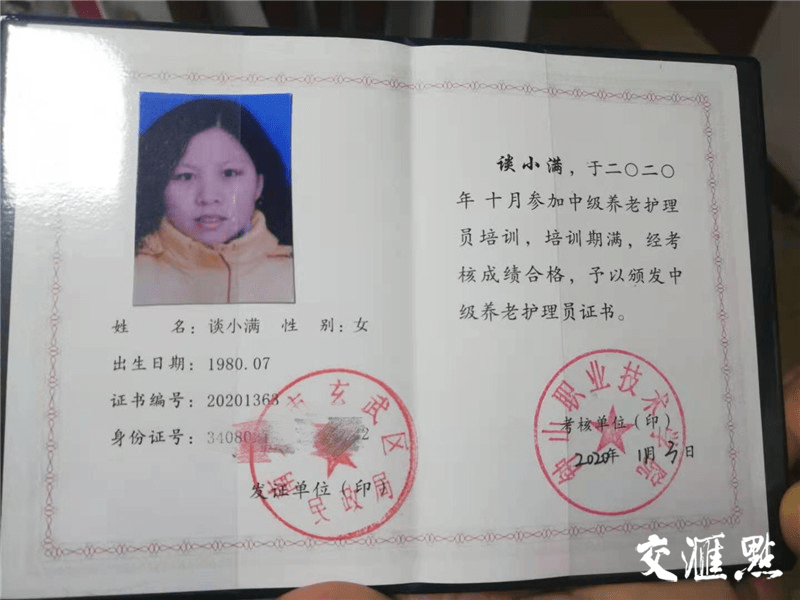 姓 名：谈小满 性 别：女
出生日期：1980.07
证书编号：20201363
身份证号：34080
2
发证单位（印）
玄武区
民政局
谈小满，于二〇二〇
年十月参加中级养老护理
员培训，培训期满，经考
核成绩合格，予以颁发中
级养老护理员证书。
钟山职业技术学院
考核单位（印）
2020年 11月3日
交滙點